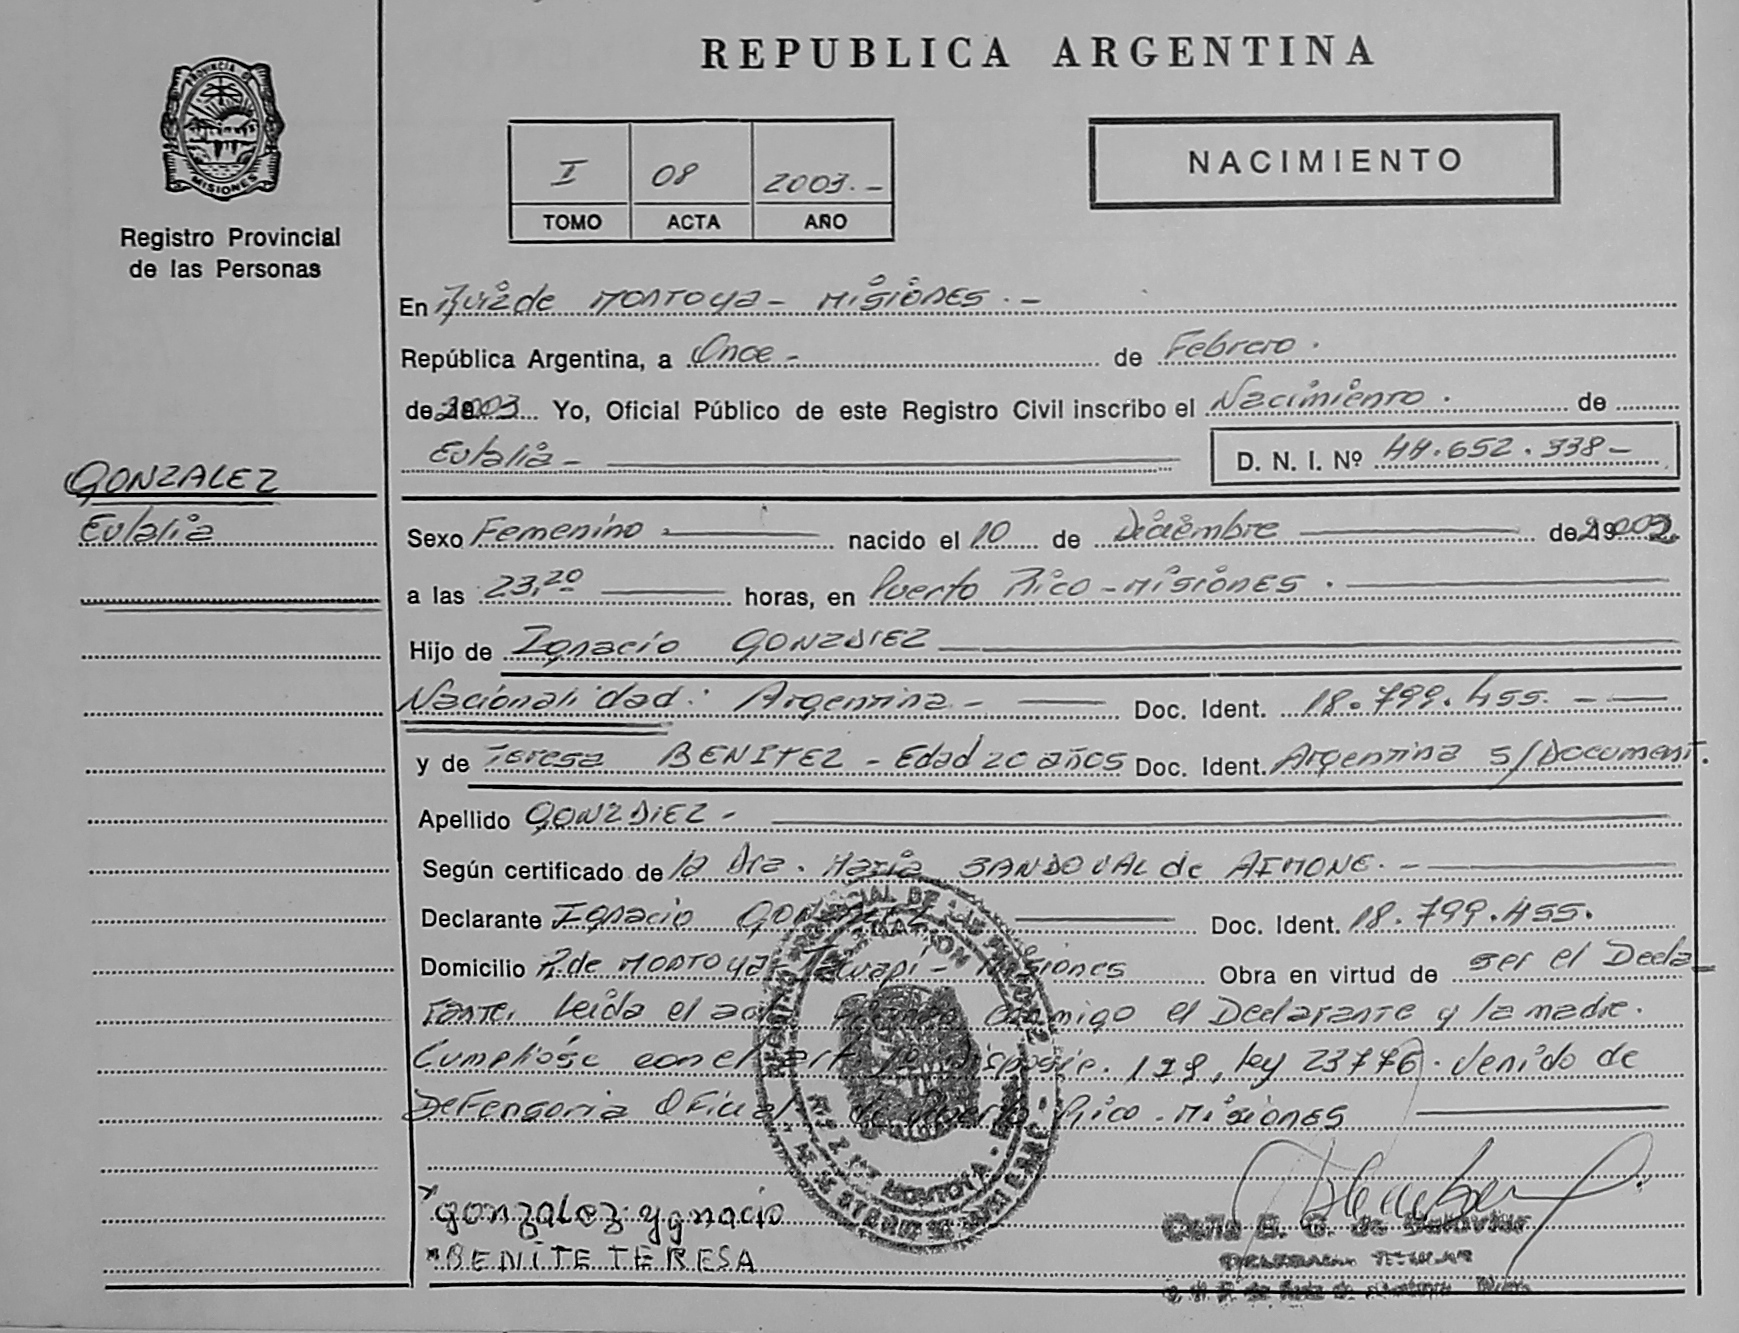 REPUBLICA ARGENTINA
PROVINCIA DE
MISIONES
Registro Provincial
de las Personas
I 08 2003.-
TOMO ACTA AÑO
NACIMIENTO
En Ruiz de MONTOYA - MISIONES. -
República Argentina, a Once - de Febrero.
de 2003 Yo, Oficial Público de este Registro Civil inscribo el Nacimiento. de
Eulalia - D. N. I. Nº 44.652.338 -
GONZALEZ
Eulalia
Sexo Femenino nacido el 10 de Diciembre de 2002
a las 23,20 horas, en Puerto Rico - MISIONES.
Hijo de Ignacio GONZALEZ
Nacionalidad: Argentina - Doc. Ident. 18.799.455. -
y de Teresa BENITEZ - Edad 20 años Doc. Ident. Argentina S/Document.
Apellido GONZALEZ -
Según certificado de la Dra. María SANDOVAL de AIMONE. -
Declarante Ignacio GONZALEZ Doc. Ident. 18.799.455.
Domicilio R. de MONTOYA - Tacuapi - Misiones Obra en virtud de ser el Decla-
rante. Leída el acta Firman conmigo el Declarante y la madre.
Cumplióse con el art. Disposic. ley 23776. Venido de
Defensoria Oficial de Puerto Rico - Misiones
gonzalez ygnacio
BENITE TERESA